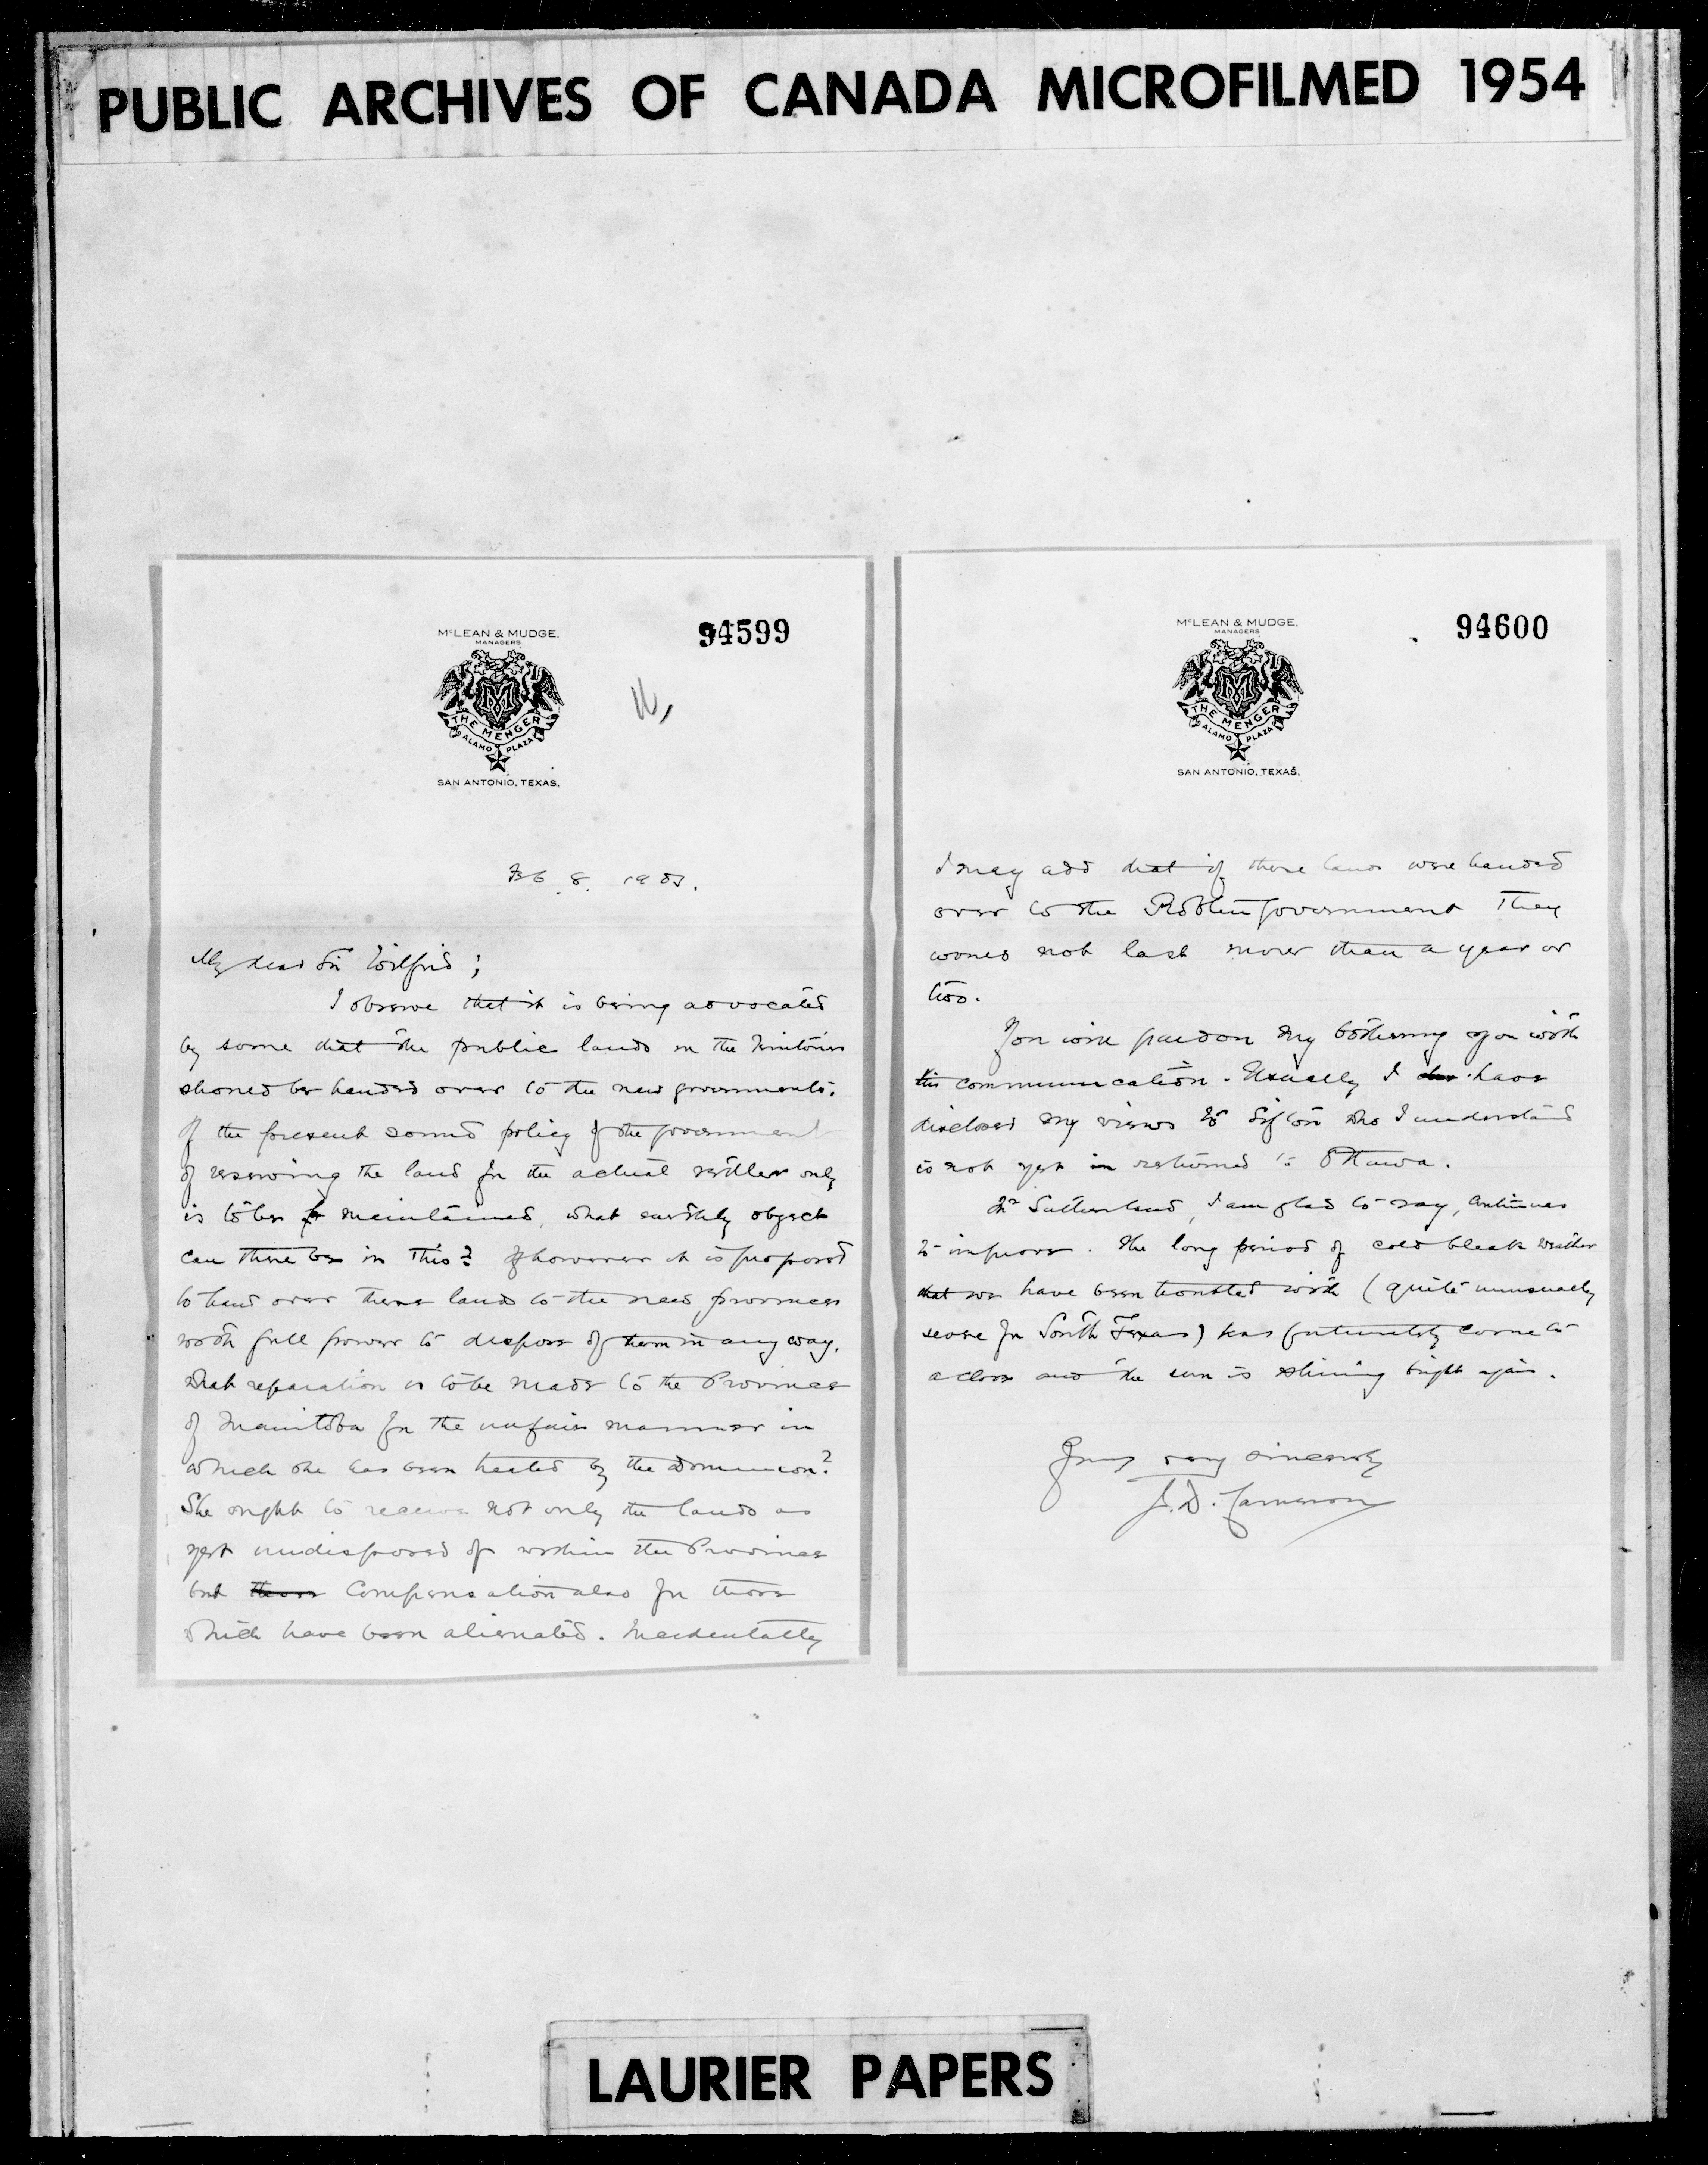 PUBLIC ARCHIVES OF CANADA MICROFILMED 1954
McLEAN & MUDGE.
MANAGERS
94599
M
THE MENGER
ALAMO PLAZA
SAN ANTONIO, TEXAS.
Feb. 8. 1905.
My dear Sir Wilfrid;
I observe that it is being advocated
by some that the public lands in the Territories
should be handed over to the new governments.
If the present sound policy of the government
of reserving the land for the actual settler only
is to be maintained, what earthly object
can there be in this? If however it is proposed
to hand over these lands to the new provinces
with full power to dispose of them in any way,
what reparation is to be made to the Province
of Manitoba for the unfair manner in
which she has been treated by the Dominion?
She ought to receive not only the lands as
yet undisposed of within the Province
but those compensation also for those
which have been alienated. Incidentally
McLEAN & MUDGE.
MANAGERS
94600
M
THE MENGER
ALAMO PLAZA
SAN ANTONIO, TEXAS.
I may add that if these lands were handed
over to the Roblin government they
would not last more than a year or
two.
You will pardon my bothering you with
this communication. Usually I have
disclosed my views to Sifton who I understand
is not yet in returned to Ottawa.
Mr Sutherland, I am glad to say, continues
to improve. The long period of cold bleak weather
that we have been troubled with (quite unusually
severe for South Texas) has fortunately come to
a close and the sun is shining bright again.
Yours very sincerely
J. D. Cameron
LAURIER PAPERS